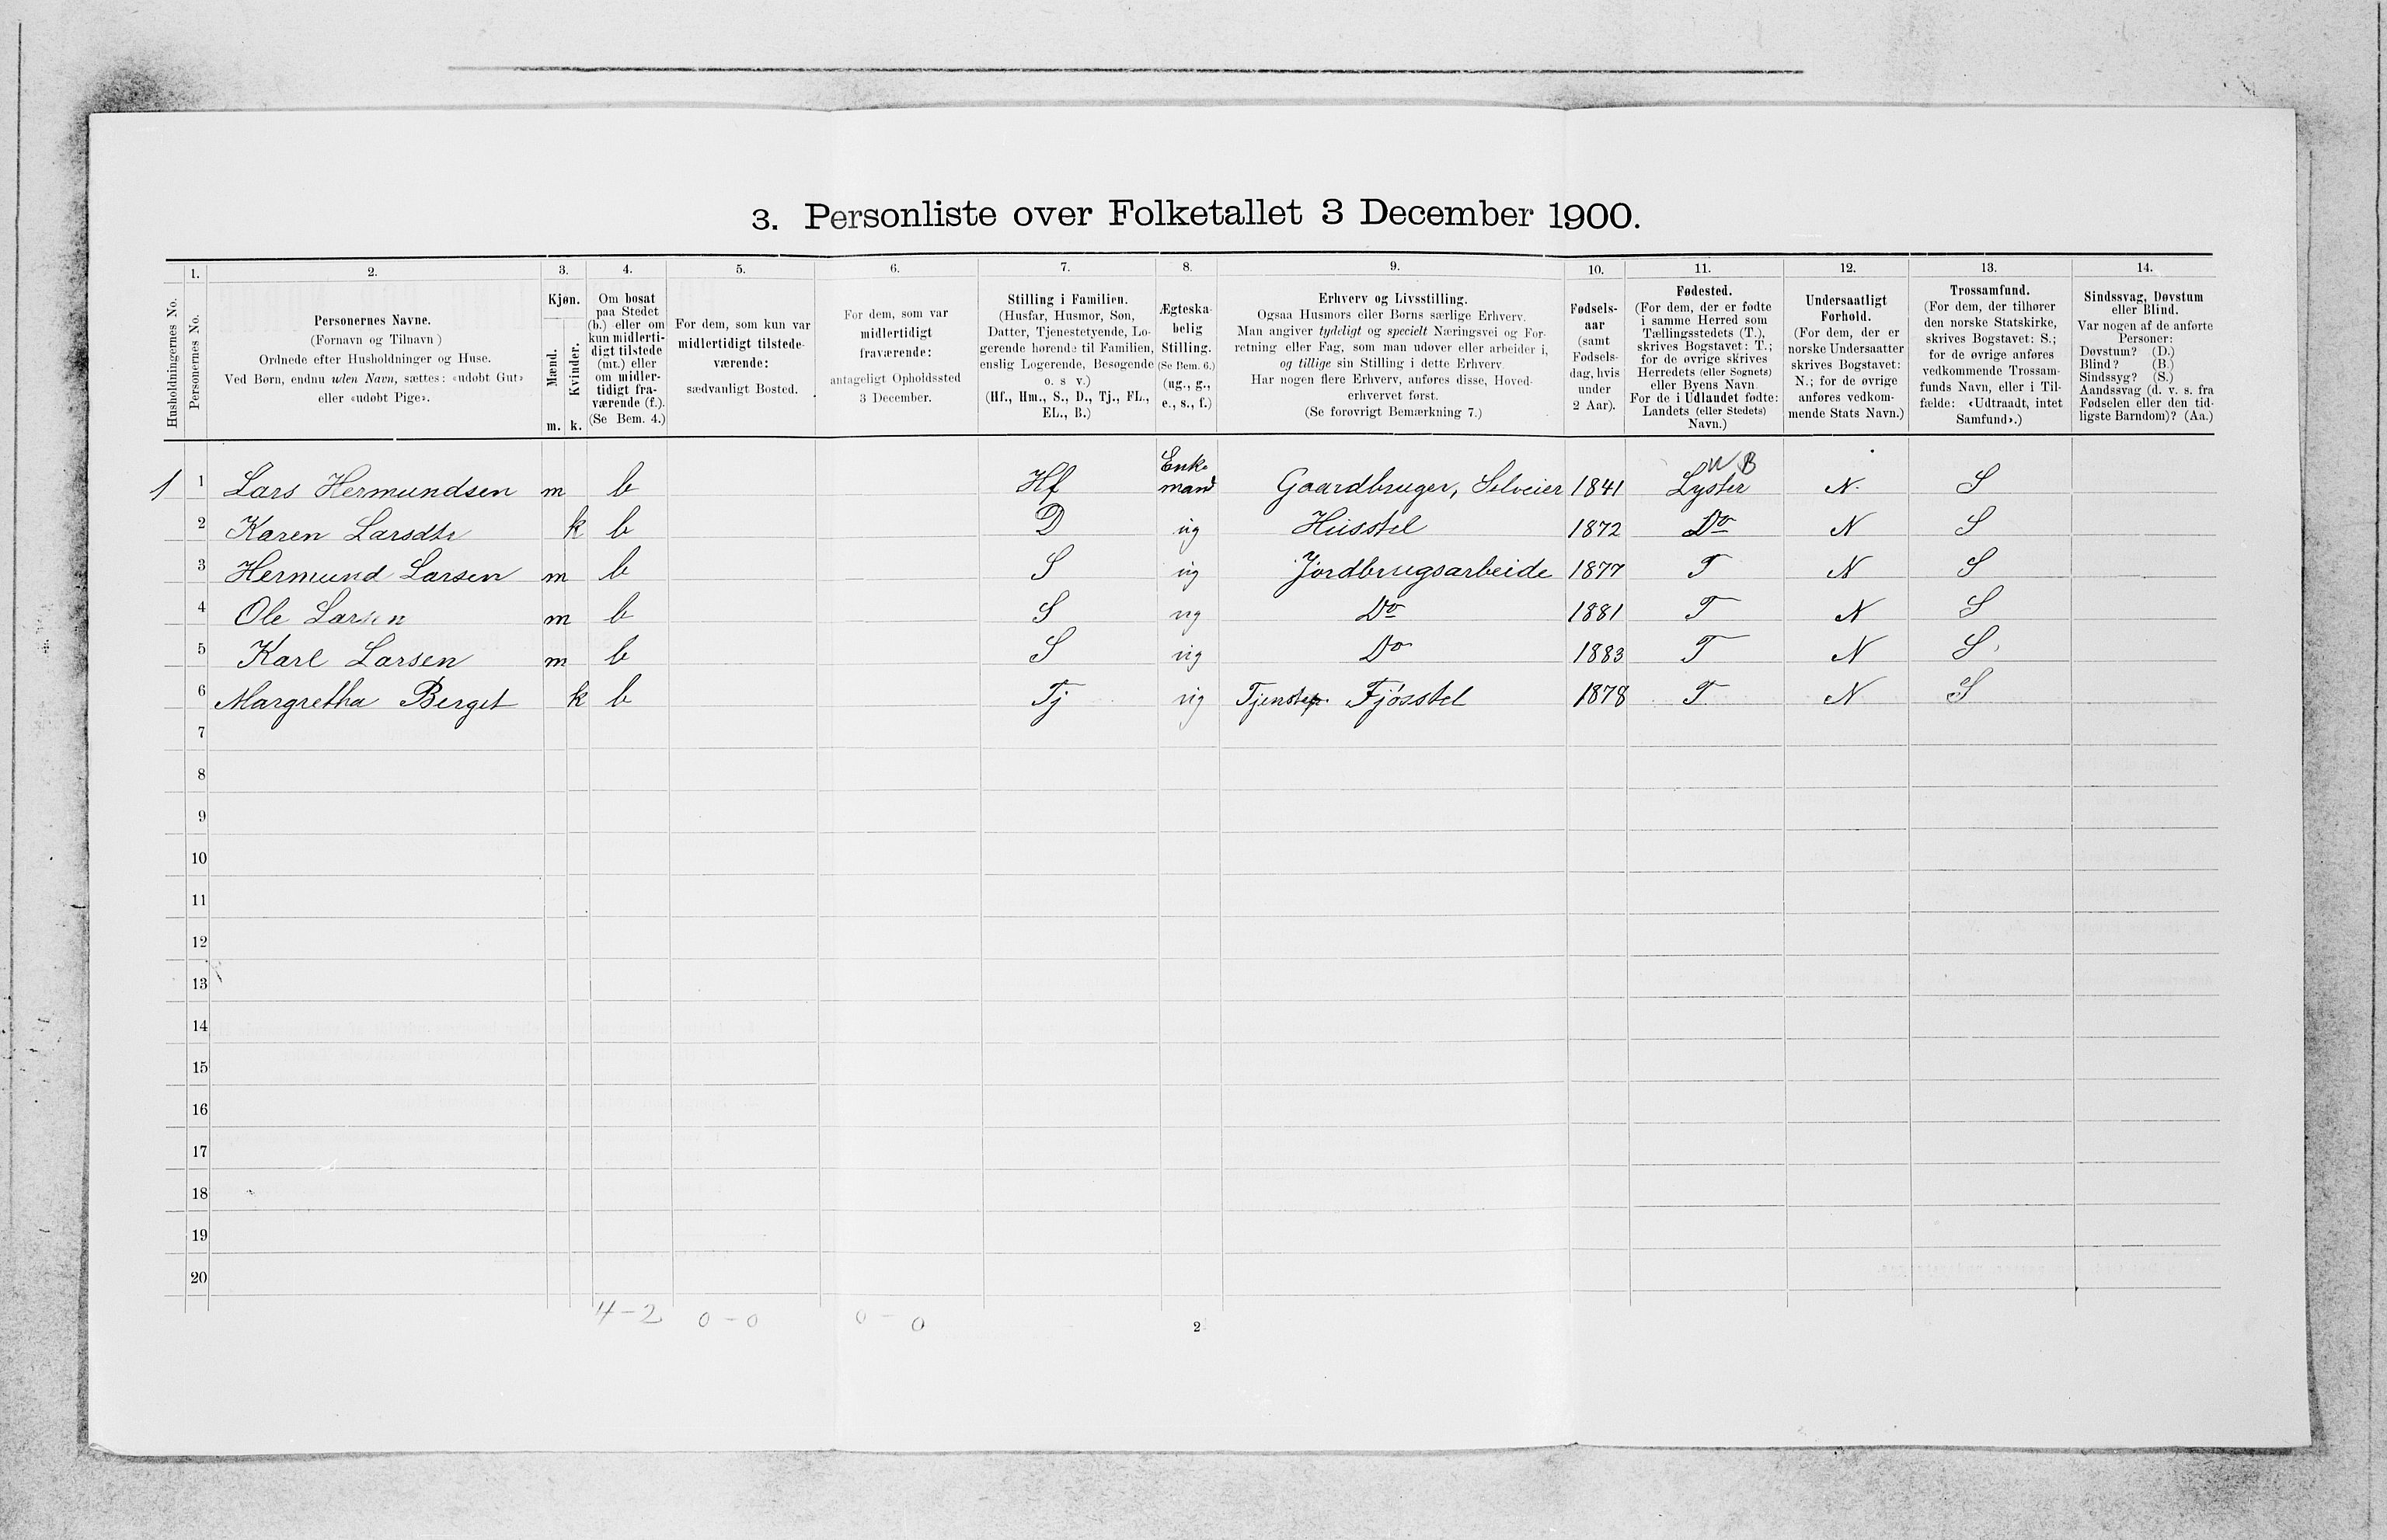 3. Personliste over Folketallet 3 December 1900.
Husholdningernes No.
1. Personernes No.
2. Personernes Navne.
(Fornavn og Tilnavn)
Ordnede efter Husholdninger og Huse.
Ved Børn, endnu uden Navn, sættes: «udøbt Gut»
eller «udøbt Pige».
3. Kjøn.
Mænd. Kvinder.
m. k.
4. Om bosat
paa Stedet
(b.) eller om
kun midlerti-
digt tilstede
(mt.) eller
om midler-
tidigt fra-
værende (f.).
(Se Bem. 4.)
5. For dem, som kun var
midlertidigt tilstede-
værende:
sædvanligt Bosted.
6. For dem, som var
midlertidigt
fraværende:
antageligt Opholdssted
3 December.
7. Stilling i Familien.
(Husfar, Husmor, Søn,
Datter, Tjenestetyende, Lo-
gerende hørende til Familien,
enslig Logerende, Besøgende
o. s v.)
(Hf., Hm., S., D., Tj., FL.,
EL., B.)
8. Ægteska-
belig
Stilling.
(Se Bem. 6.)
(ug., g.,
e., s., f.)
9. Erhverv og Livsstilling.
Ogsaa Husmors eller Børns særlige Erhverv.
Man angiver tydeligt og specielt Næringsvei og For-
retning eller Fag, som man udøver eller arbeider i,
og tillige sin Stilling i dette Erhverv.
Har nogen flere Erhverv, anføres disse, Hoved-
erhvervet først.
(Se forøvrigt Bemærkning 7.)
10. Fødsels-
aar
(samt
Fødsels-
dag, hvis
under
2 Aar).
11. Fødested.
(For dem, der er fødte
i samme Herred som
Tællingsstedets (T.),
skrives Bogstavet: T.;
for de øvrige skrives
Herredets (eller Sognets)
eller Byens Navn
For de i Udlandet fødte:
Landets (eller Stedets)
Navn.)
12. Undersaatligt
Forhold.
(For dem, der er
norske Undersaatter
skrives Bogstavet:
N.; for de øvrige
anføres vedkom-
mende Stats Navn.)
13. Trossamfund.
(For dem, der tilhører
den norske Statskirke,
skrives Bogstavet: S.;
for de øvrige anføres
vedkommende Trossam-
funds Navn, eller i Til-
fælde: «Udtraadt, intet
Samfund».)
14. Sindssvag, Døvstum
eller Blind.
Var nogen af de anførte
Personer:
Døvstum? (D.)
Blind? (B.)
Sindssyg? (S.)
Aandssvag (d. v. s. fra
Fødselen eller den tid-
ligste Barndom)? (Aa.)
1 1 Lars Hermundsen m b Hf Enkemand Gaardbruger, Selveier 1841 Lyster N. S
2 Karen Larsdtr k b D ug Husstel 1872 Do N S
3 Hermund Larsen m b S ug Jordbrugsarbeide 1877 T N S
4 Ole Larsen m b S ug Do 1881 T N S
5 Karl Larsen m b S ug Do 1883 T N S
6 Margretha Berget k b Tj ug Tjenstep. Fjøsstel 1878 T N S
7
8
9
10
11
12
13
14
15
16
17
18
19
20
4-2 0-0 0-0
2